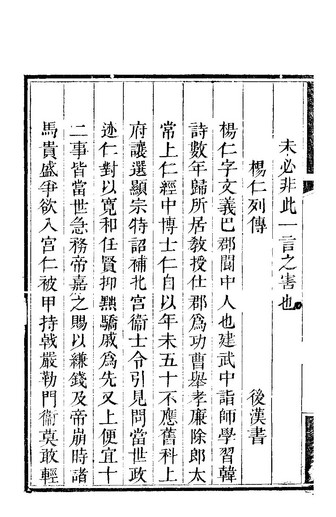 未必非此一言之害也
楊仁列傳　後漢書
楊仁字文義巴郡閬中人也建武中詣師學習韓
詩數年歸所居教授仕郡爲功曹舉孝廉除郎太
常上仁經中博士仁自以年未五十不應舊科上
府讓選顯宗特詔補北宮衞士令引見問當世政
迹仁對以寬和任賢抑黜驕戚爲先又上便宜十
二事皆當世急務帝嘉之賜以縑錢及帝崩時諸
馬貴盛爭欲入宮仁被甲持戟嚴勒門衞莫敢輕